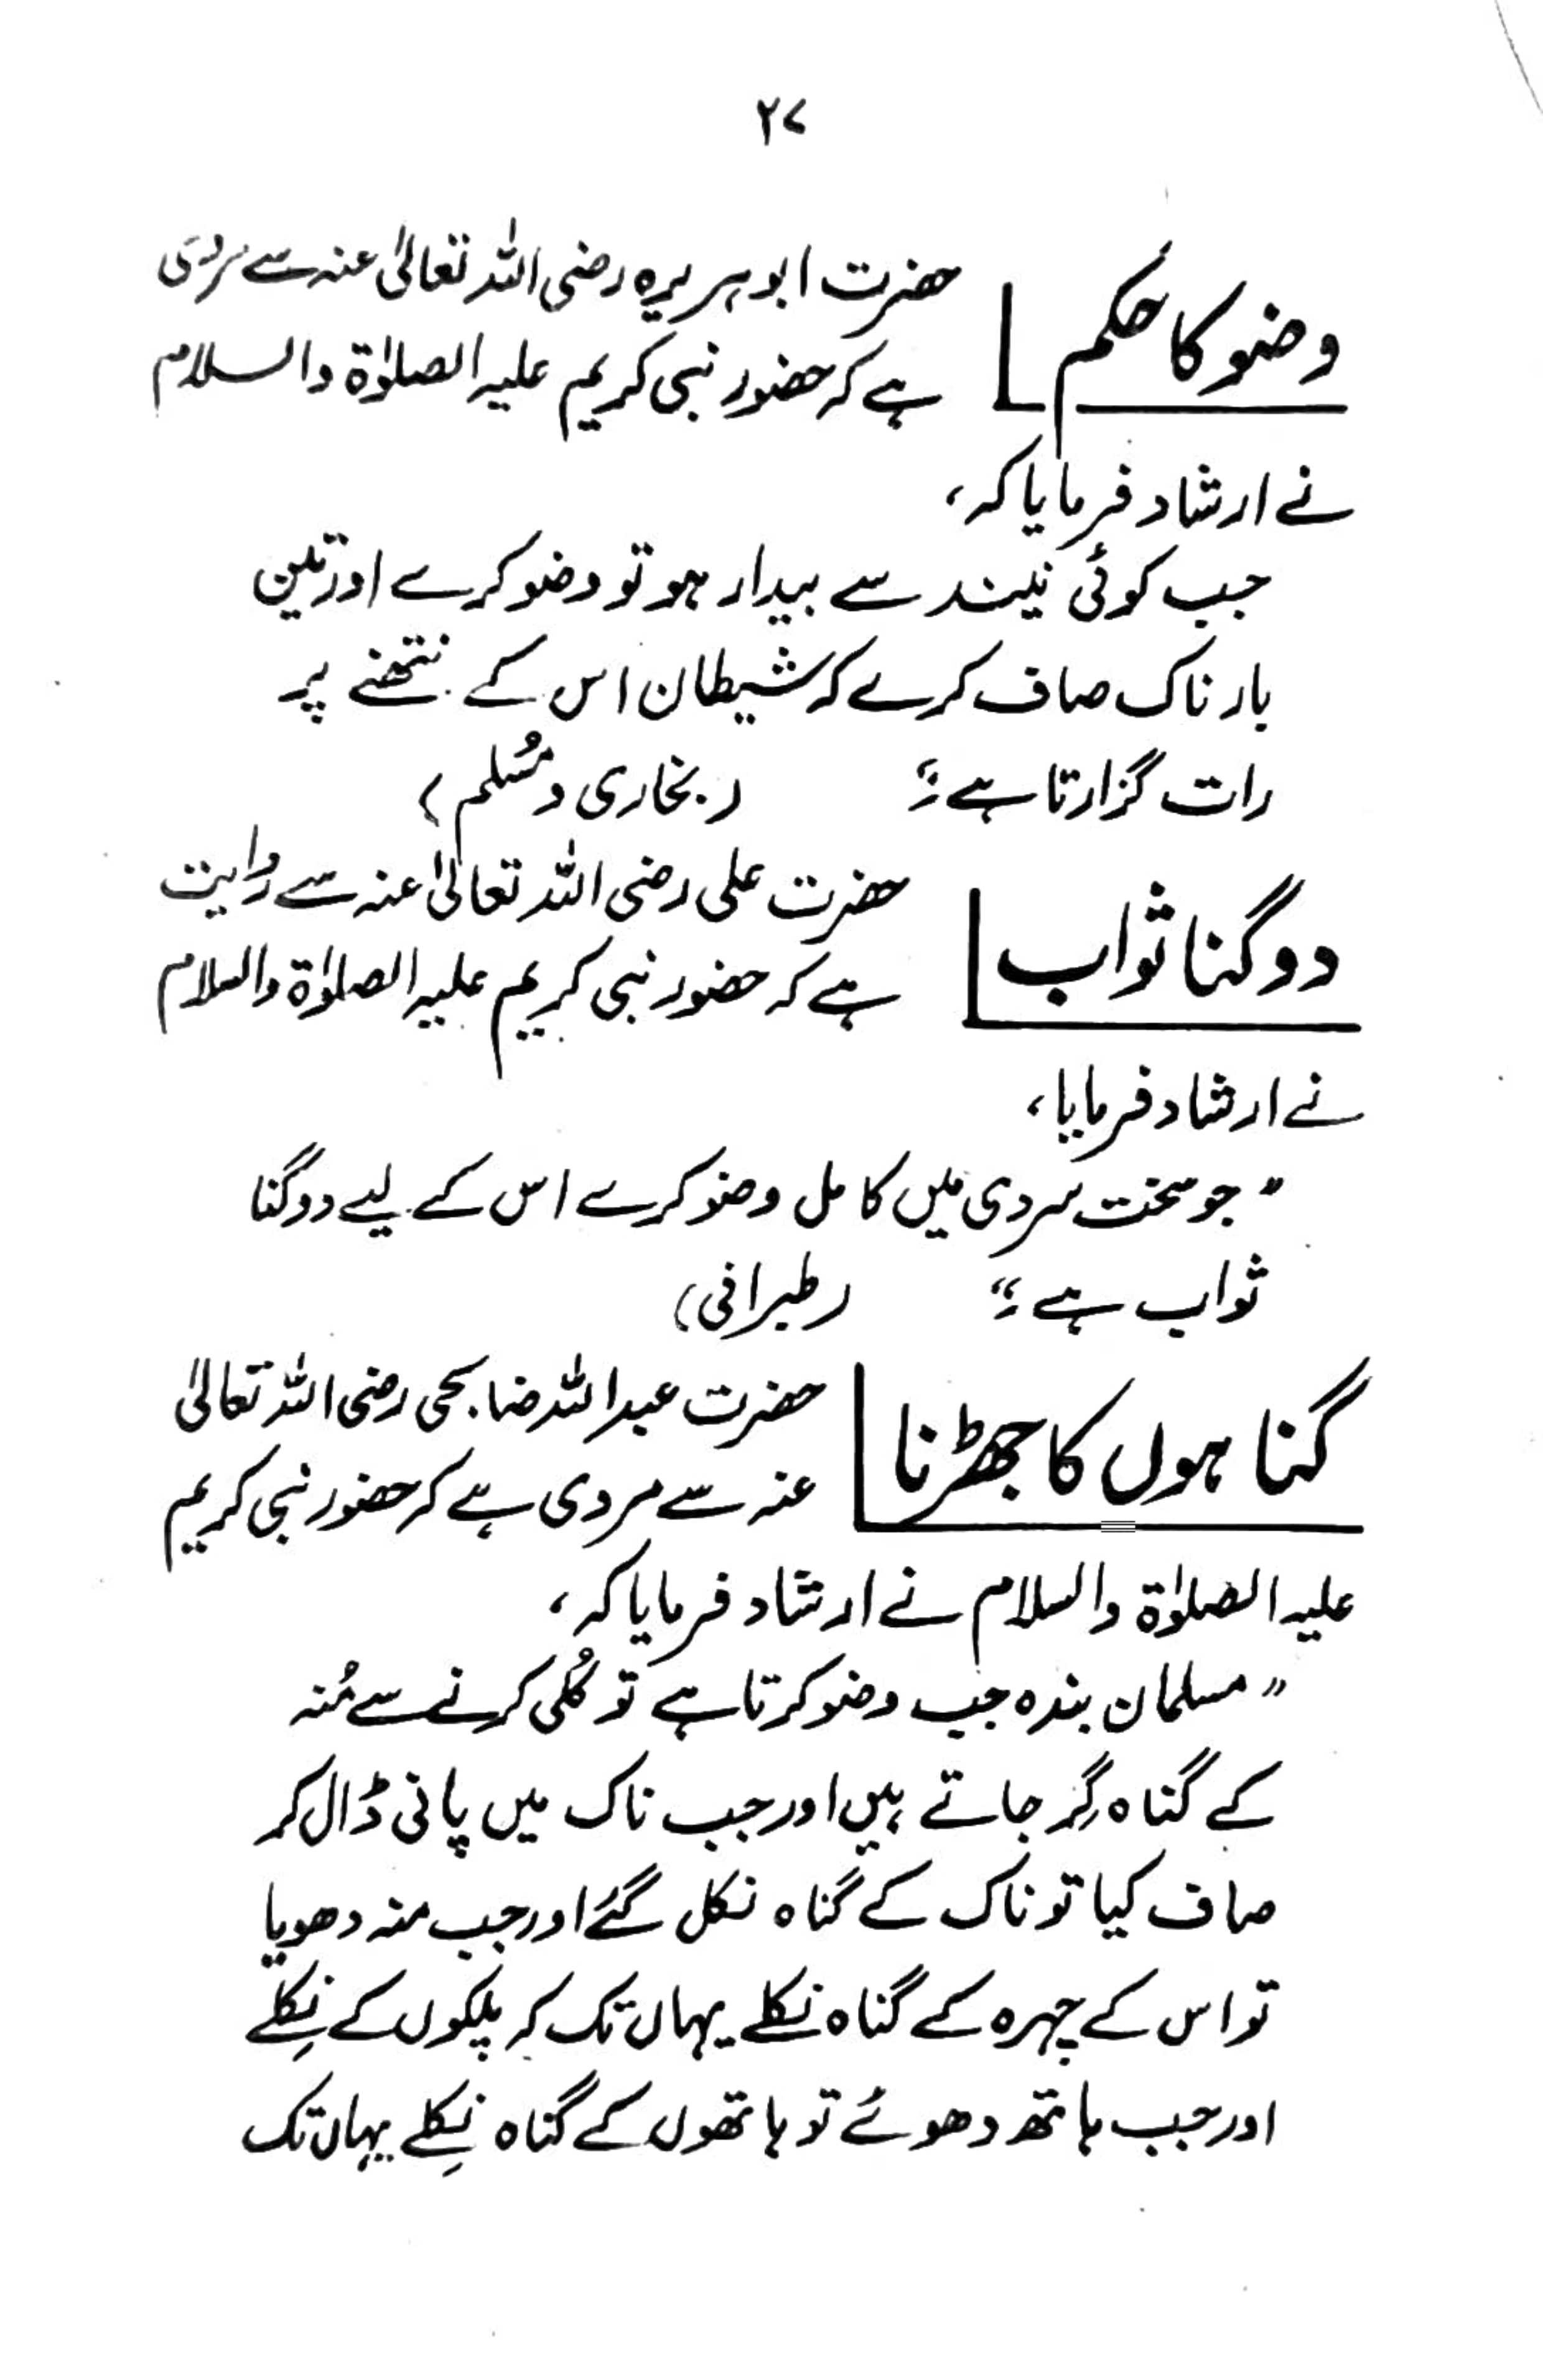 ۲۷
وضو کا حکم
حضرت ابوہریرہ رضی اللہ تعالیٰ عنہ سے مروی
ہے کہ حضور نبی کریم علیہ الصلوٰۃ والسلام
نے ارشاد فرمایا کہ،
جب کوئی نیند سے بیدار ہو تو وضو کرے اور تین
بار ناک صاف کرے کہ شیطان اس کے نتھنے پر
رات گزارتا ہے۔“ (بخاری و مُسلم)
دوگنا ثواب
حضرت علی رضی اللہ تعالیٰ عنہ سے روایت
ہے کہ حضور نبی کریم علیہ الصلوٰۃ والسلام
نے ارشاد فرمایا،
”جو سخت سردی میں کامل وضو کرے اس کے لیے دوگنا
ثواب ہے۔“ (طبرانی)
گناہوں کا جھڑنا
حضرت عبداللہ ضابحی رضی اللہ تعالیٰ
عنہ سے مروی ہے کہ حضور نبی کریم
علیہ الصلوٰۃ والسلام نے ارشاد فرمایا کہ،
”مسلمان بندہ جب وضو کرتا ہے تو کُلی کرنے سے مُنہ
کے گناہ گِر جاتے ہیں اور جب ناک میں پانی ڈال کر
صاف کیا تو ناک کے گناہ نکل گئے اور جب منہ دھویا
تو اس کے چہرہ کے گناہ نکلے یہاں تک کہ پلکوں کے نِکلے
اور جب ہاتھ دھوئے تو ہاتھوں کے گناہ نِکلے یہاں تک